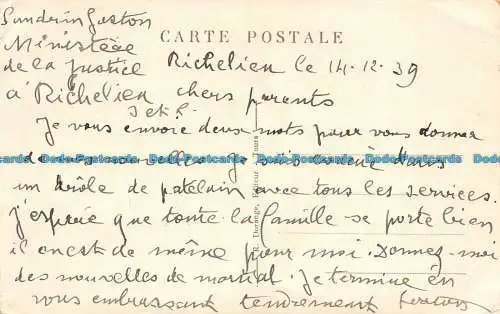 Sandrin Gaston
CARTE POSTALE
Ministère
de la Justice
Richelieu le 14.12.39
à Richelieu
I et L.
chers parents
Je vous envoie deux mots pour vous donner
de mes nouvelles. Je suis évacué dans
un drôle de patelain avec tous les services.
J'espère que toute la famille se porte bien
il en est de même pour moi. Donnez-moi
des nouvelles de martial. Je termine en
vous embrassant tendrement